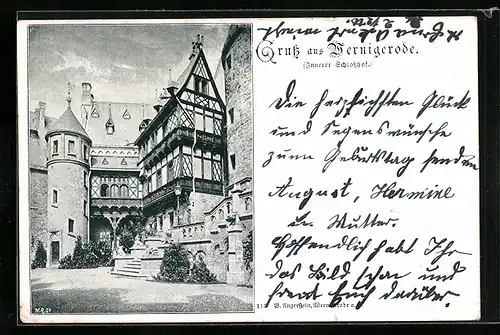 Gruß aus Wernigerode.
(Innerer Schloßhof.)
Die herzlichsten Glück
und Segenswünsche
zum Geburtstag senden
August, Hermine
u. Mutter.
Hoffendlich habt Ihr
das Bild schon und
freut Euch darüber
B. Angerstein, Wernigerode a.